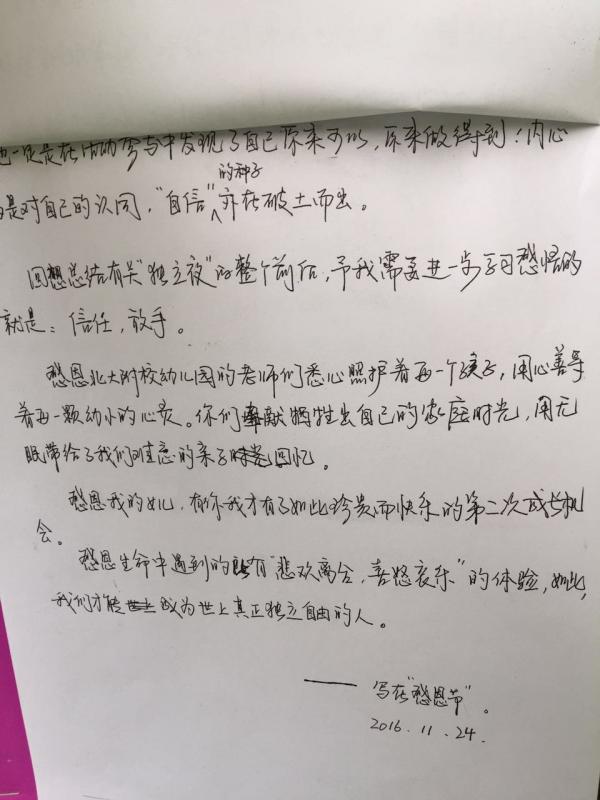 也一定是在活动参与中发现了自己原来可以，原来做得到！内心
是对自己的认同，“自信”的种子亦在破土而出。
回想总结有关“独立夜”的整个前后，予我需要进一步学习感悟的
就是：信任，放手。
感恩北大附校幼儿园的老师们悉心照护着每一个孩子，用心善导
着每一颗幼小的心灵。你们牺牲出自己的家庭时光，用无
眠带给了我们难忘的亲子回忆。
感恩我的女儿，有你我才有了如此珍贵而快乐的第二次成长机
会。
感恩生命中遇到的所有“悲欢离合，喜怒哀乐”的体验，如此，
我们才能成为世上真正独立自由的人。
——写在“感恩节”。
2016.11.24.